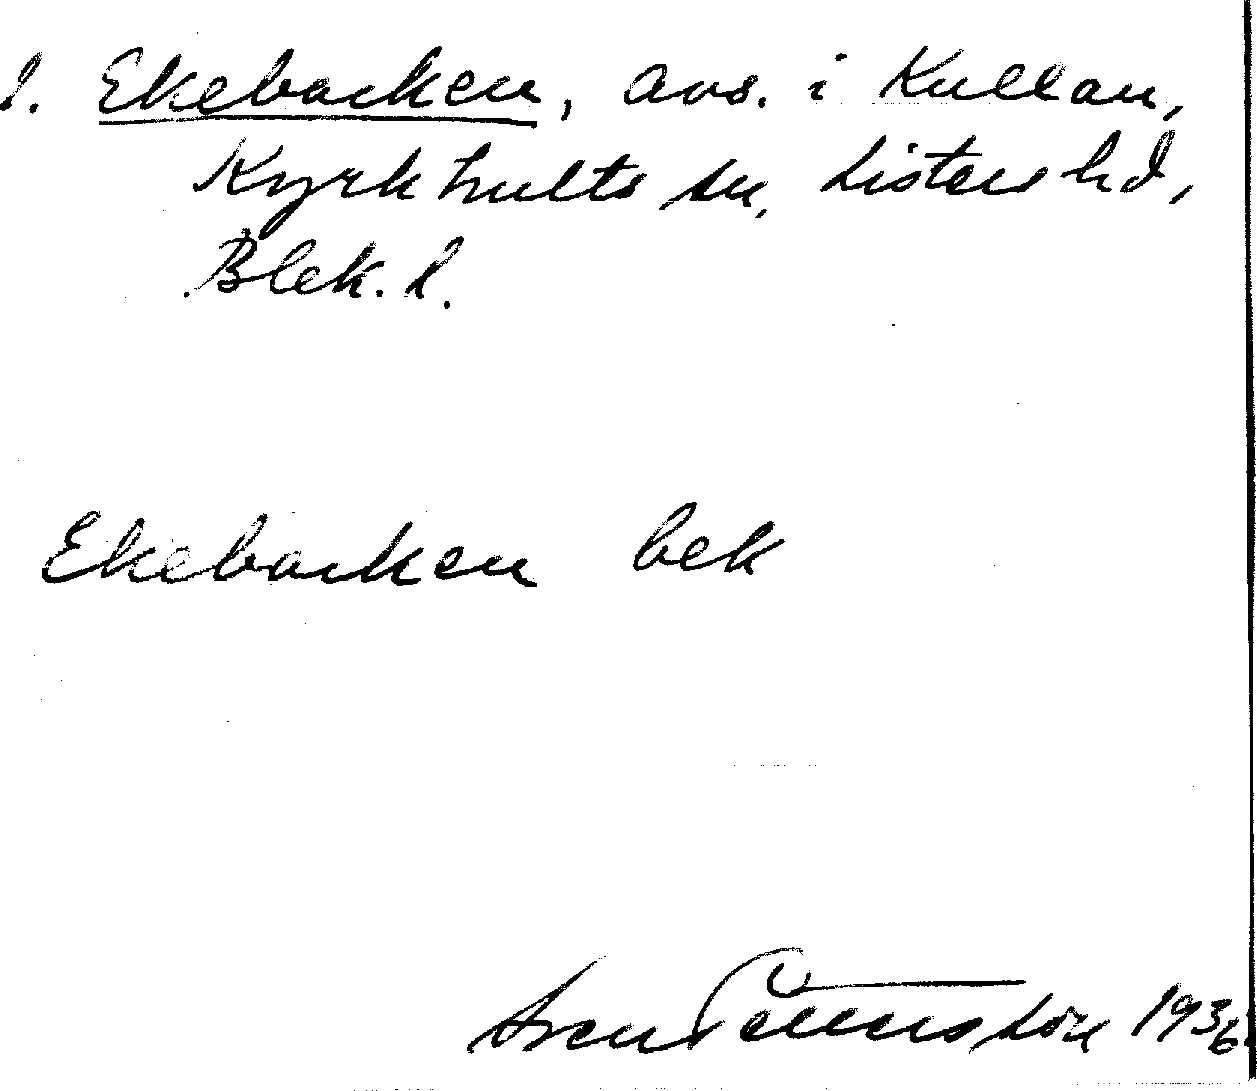 l. Ekebacken, avs. i Kullan,
Kyrkhults sn, Listers hd,
Blek. l.
Ekebacken bek
Sven Pettersson 1936